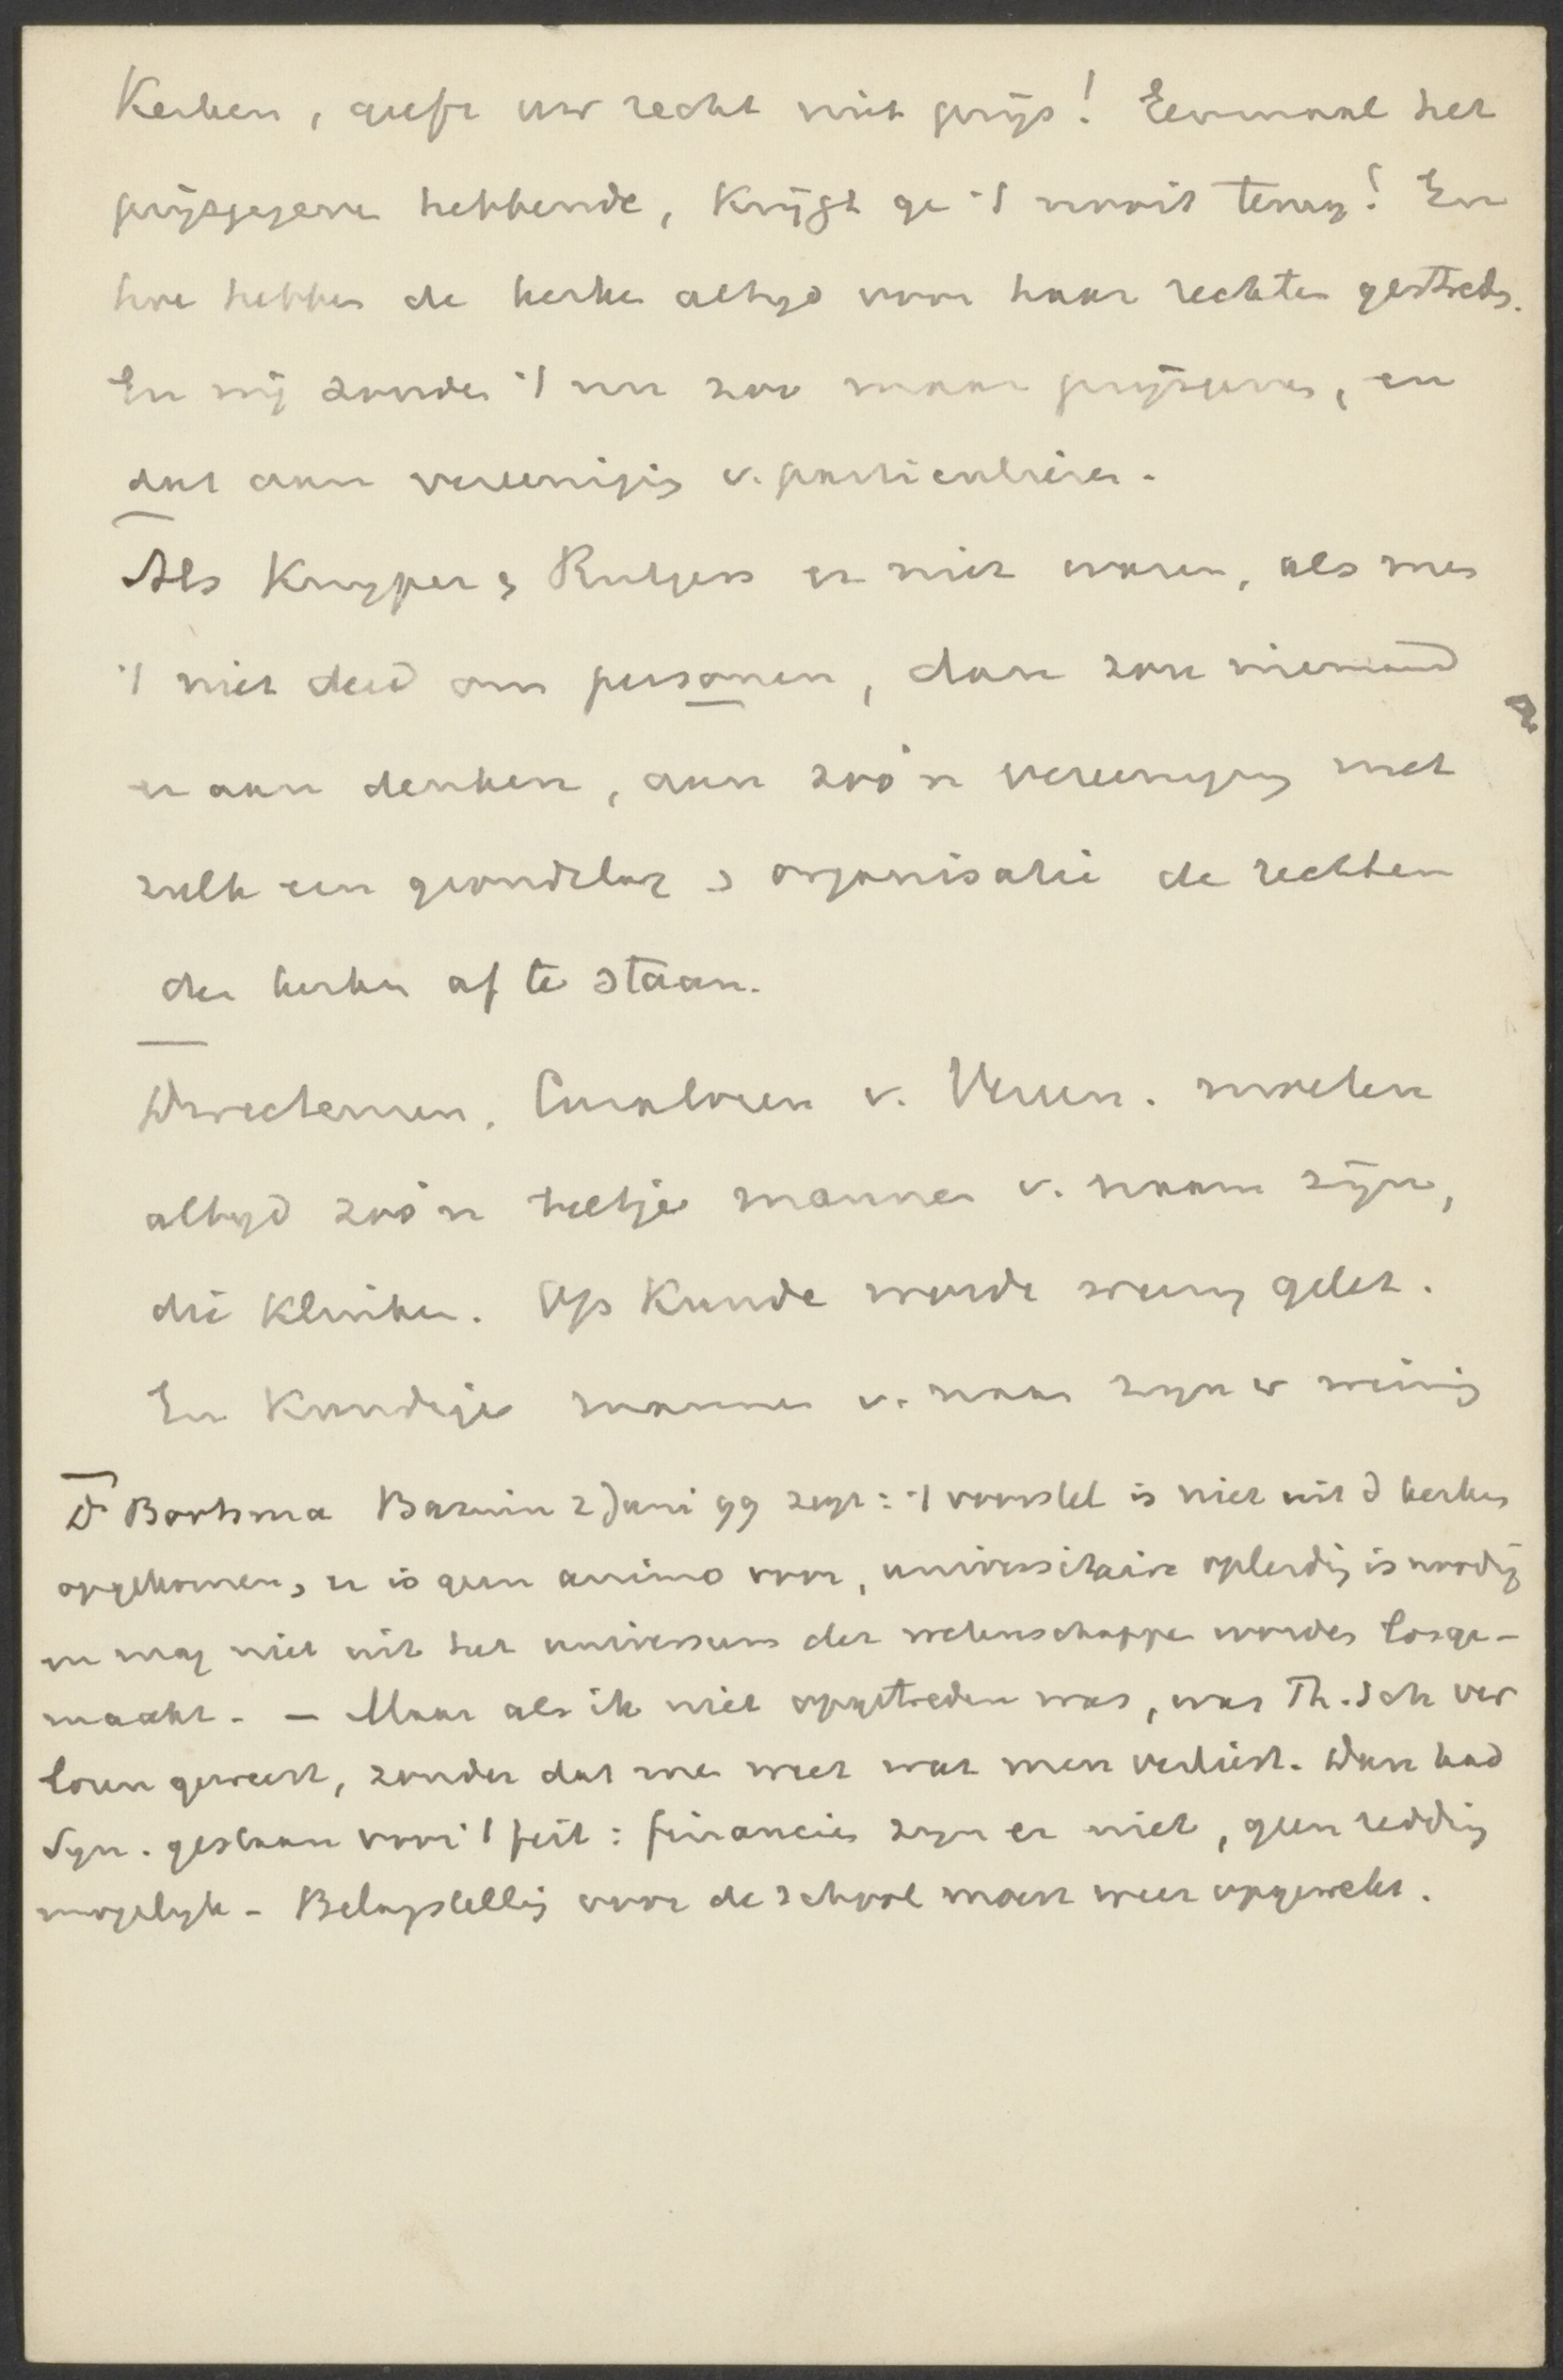 Kerken, geeft uw recht niet prijs! Eenmaal het
prijsgegeven hebbende, krijgt ge 't nooit terug! En
hoe hebben de kerken altijd voor haar rechten gestreden.
En wij zouden 't nu zoo maar prijsgeven, en
dat aan vereeniging v. particulieren.
Als Kuyper & Rutgers er niet waren, als men
't niet deed om personen, dan zou niemand
er aan denken, aan zoo'n vereeniging met
zulk een grondslag & organisatie de rechten
der kerken af te staan.
Directeuren, Curatoren v. Vereen. moeten
altijd zoo'n troepje mannen v. naam zijn,
die klinken. Op kunde wordt weinig gelet.
En kundige mannen v. naam zijn er weinig
Ds Bootsma Bazuin 2 Juni 99 zegt: 't voorstel is niet uit d kerken
opgekomen, er is geen animo voor, universitaire opleiding is noodig
en mag niet uit het universum der wetenschappen worden losge-
maakt. — Maar als ik niet opgetreden was, was Th. Sch ver
loren geweest, zonder dat men weet wat men verliest. Dan had
Syn. gestaan voor 't feit: financiën zijn er niet, geen redding
mogelijk - Belangstelling voor de school moest weer opgewekt.